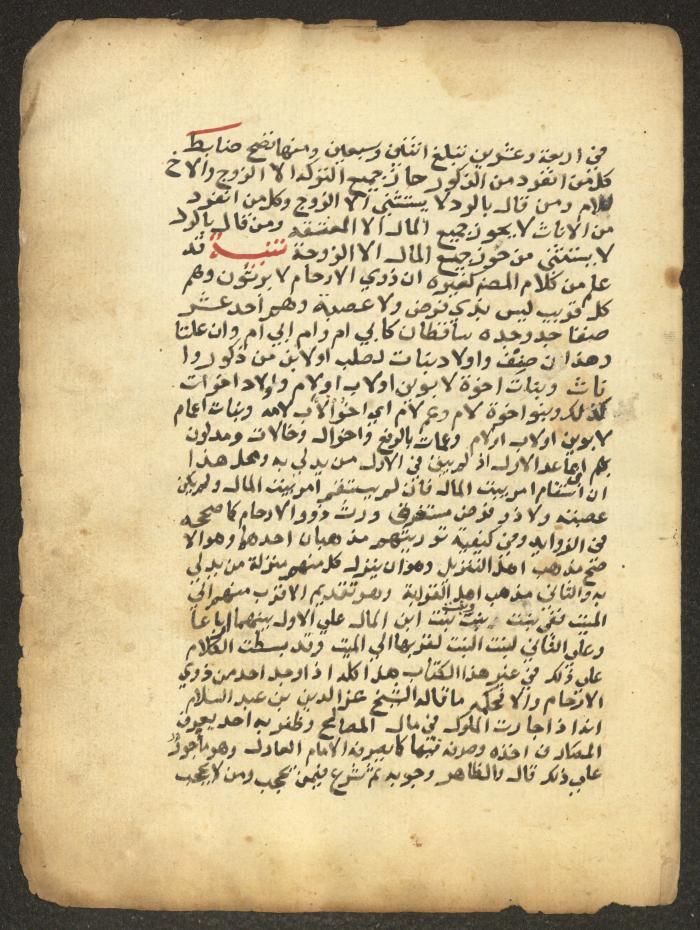 في اربعة وعشرين تبلغ اثنين وسبعين ومنها تصح ضابط
كل من انفرد من الذكور حاز جميع التركة الا الزوج والاخ
للام ومن قال بالرد لا يستثني الا الزوج وكل من انفرد
من الاناث لا يحوز جميع المال الا المعتقة ومن قال بالرد
لا يستثني من حوز جميع المال الا الزوجة تنبيه قد
علم من كلام المصنف كغيره ان ذوي الارحام لا يرثون وهم
كل قريب ليس بذي فرض ولا عصبة وهم احد عشر
صنفا جد وجدة ساقطان كابي ام وام ابي ام وان علتا
وهذان صنف واولاد بنات لصلب او لابن من ذكور وا
ناث وبنات اخوة لابوين او لاب او لام واولاد اخوات
كذلك وبنو اخوة لام وعم لام اي اخو الاب لامه وبنات اعمام
لابوين او لاب او لام وعمات بالرفع واخوال وخالات ومدلون
بهم اي بما عدا الاول اذ لم يبق في الاول من يدلي به ومحل هذا
ان استقام امر بيت المال فان لم يستقم امر بيت المال ولم يكن
عصبة ولا ذو فرض مستغرق ورث ذوو الارحام كما صححه
في الزوايد وفي كيفية توريثهم مذهبان احدهما وهو الا
صح مذهب اهل التنزيل وهو ان ينزل كل منهم منزلة من يدلي
به والثاني مذهب اهل القرابة وهو تقديم الاقرب منهم الي
الميت ففي بنت بنت وبنت بنت ابن المال علي الاول بينهما ارباعا
وعلي الثاني لبنت البنت لقربها الي الميت وقد بسطت الكلام
علي ذلك في غير هذا الكتاب هذا كله اذا وجد احد من ذوي
الارحام والا فحكمه ما قاله الشيخ عز الدين بن عبد السلام
انه اذا جارت الملوك في مال المصالح وظفر به احد يعرف
المصارف اخذه وصرفه فيها كما يصرفه الامام العادل وهو ماجور
علي ذلك قال والظاهر وجوبه ثم شرع فيمن يحجب ومن لا يحجب